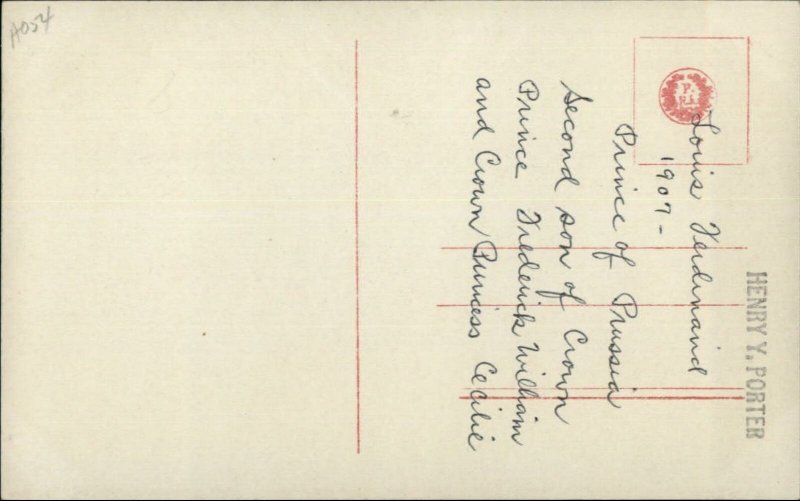 A054
Louis Ferdinand
1907-
Prince of Prussia
Second son of Crown
Prince Frederick William
and Crown Princess Cecilie
HENRY Y. PORTER